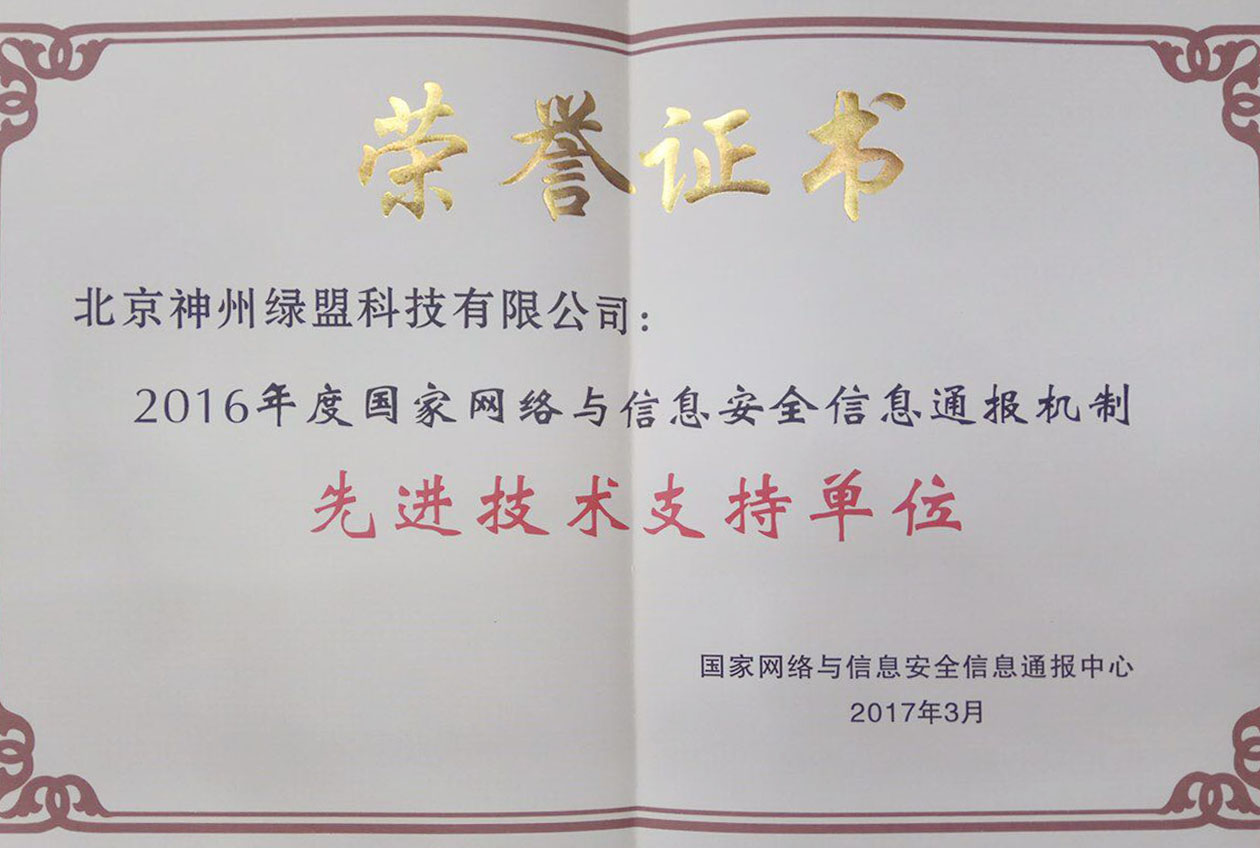 荣誉证书
北京神州绿盟科技有限公司：
2016年度国家网络与信息安全信息通报机制
先进技术支持单位
国家网络与信息安全信息通报中心
2017年3月